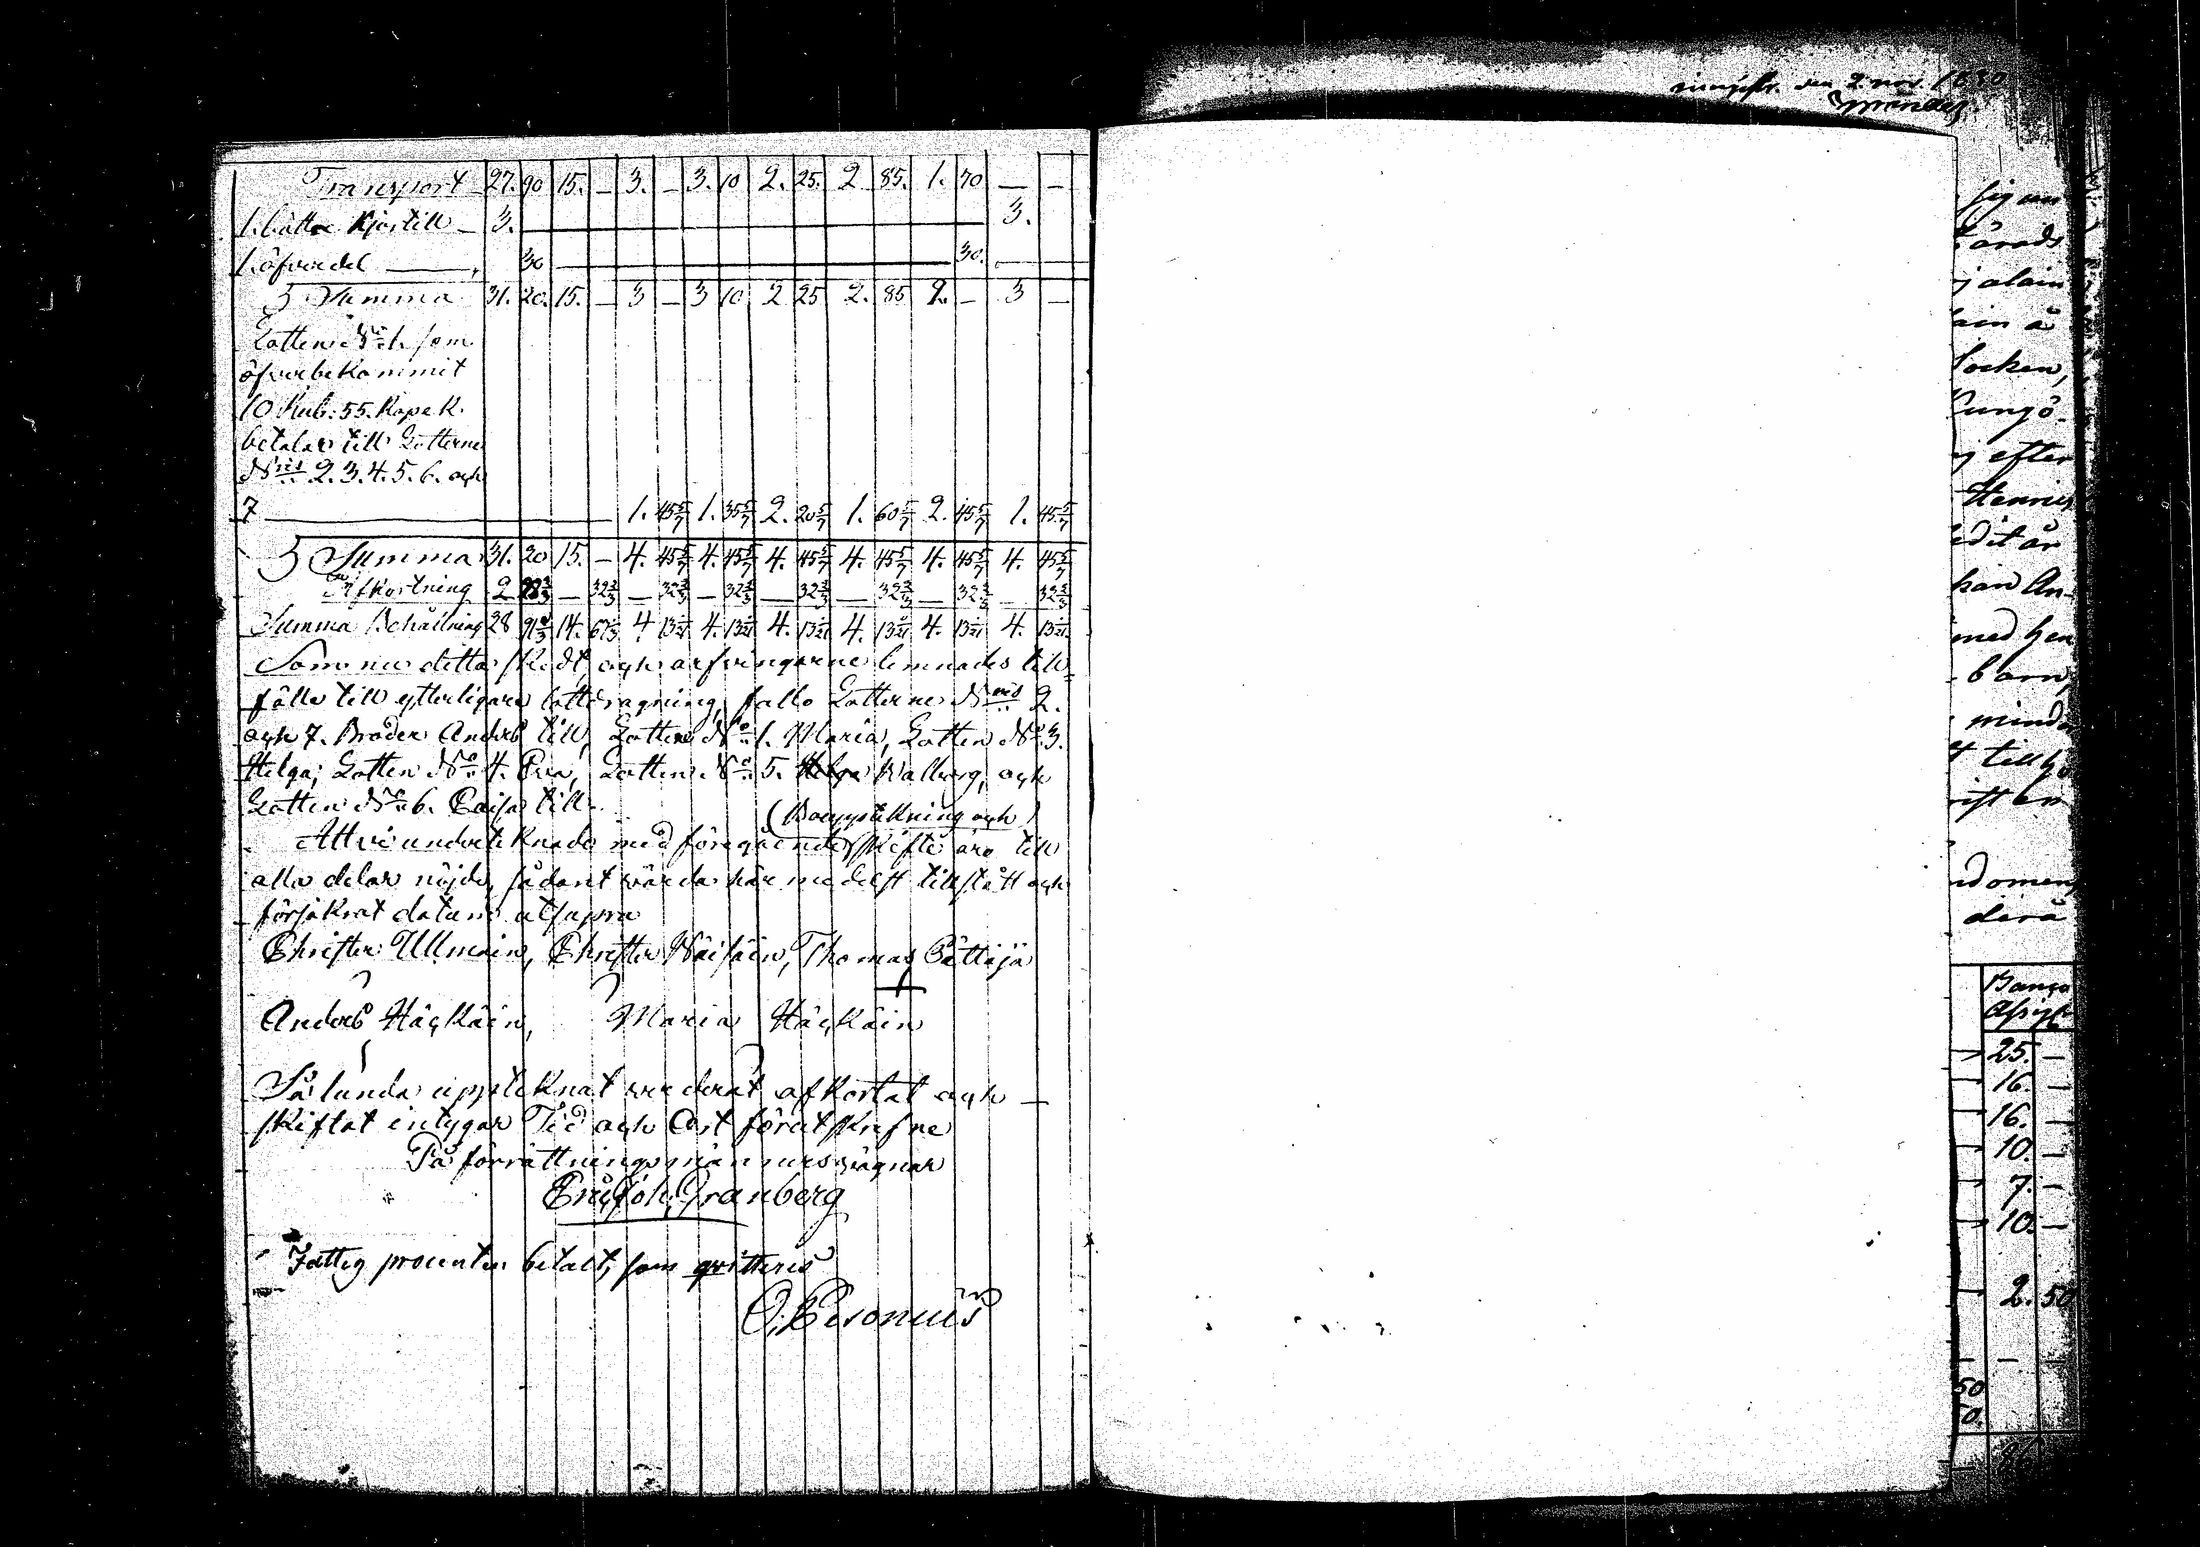 inregistr. den 2 nov. 1850
Transport 27. 90 15. — 3. — 3. 10 2. 25. 2. 85. 1. 70 — —
1. bättre kjortill — 3. 3.
1. öfverdel — 30 30.
Summa 31. 20. 15. — 3 — 3 10 2 25 2. 85 2. — 3 —
Lotten No 1. som
öfverbekommit
10 Rub: 55. Kopek.
betalar till Lotterne
Nris 2. 3. 4. 5. 6. och
7 — 1. 45 5/7 1. 35 5/7 2. 20 5/7 1. 60 5/7 2. 45 5/7 1. 45 5/7
Summa 31. 20 15. — 4. 45 5/7 4. 45 5/7 4. 45 5/7 4. 45 5/7 4. 45 5/7 4. 45 5/7
Afkortning 2 28 2/3 — 32 2/3 — 32 2/3 — 32 2/3 — 32 2/3 — 32 2/3 — 32 2/3 — 32 2/3
Summa Behållning 28 91 1/3 14. 67 1/3 4 13 1/21 4. 13 1/21 4. 13 1/21 4. 13 1/21 4. 13 1/21 4. 13 1/21
Som nu detta skedt, och arfvingarne lemnades till-
fälle till ytterligare lottdragning, fallo Lotterne Nris 2.
och 7. Brodern Anders till, Lotten No 1. Maria, Lotten No 3.
Helga; Lotten No 4. Eva, Lotten No 5. Helga Walborg, och
Lotten No 6. Caisa till.
(Bouppteckning och)
Att vi undertecknade med föregående skifte äro till
alla delar nöjde, sådant varder här medelst tillstått och
försäkrat datum utsupra
Christer Ullmain, Christer Väisäin, Thomas Pättäjä
Anders Häckäin, Maria Häckäin
Sålunda upptecknat värderat afkortat och —
skiftat intygar Tid och Ort förutskrefne
På förrättningsmännens vägnar
Eric Joh: Granberg
Fattig procenten betalt, som qvitteras
O. Pesonius
sig un
härads
j alain
ain å
Socken,
Kungö-
j efter
Henric
edit år
han An-
med hen
barn,
mind
tillhö
rift en
ndomen,
derå
Banco
Assign
25. —
16. —
16. —
10. —
7. —
10. —
2. 50
50
0.